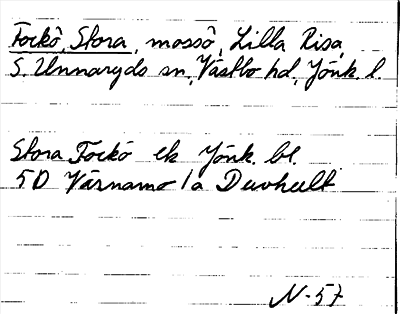 Fockö, Stora, mossö, Lilla Risa,
S. Unnaryds sn, Västbo hd, Jönk. l.
Stora Fockö ek Jönk. bl.
5D Värnamo 1a Duvhult
N-57